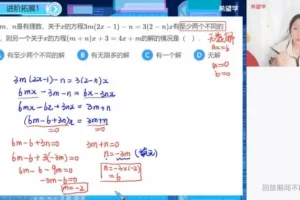 进阶拓展1
希望学
m、n是有理数，关于x的方程3m(2x-1)-n=3(2-n)x有至少两个不同的
，则另一个关于x的方程(m+n)x+3=4x+m的解的情况是( )
有至少两个不同的解 B 有无限多的解 C 有一个解 D 无解
ax=b
a=0
b=0
3m(2x-1)-n=3(2-n)x
6mx-3m-n=6x-3nx
6mx-6x+3nx=3m+n
(6m-6+3n)x=3m+n
=0 =0
6m-6+3n=0 3m+n=0
6m-6+3(-3m)=0 n=-3m
6m-6-9m=0 n=-3×(-2)
-3m-6=0 =6
m=-2
希望学